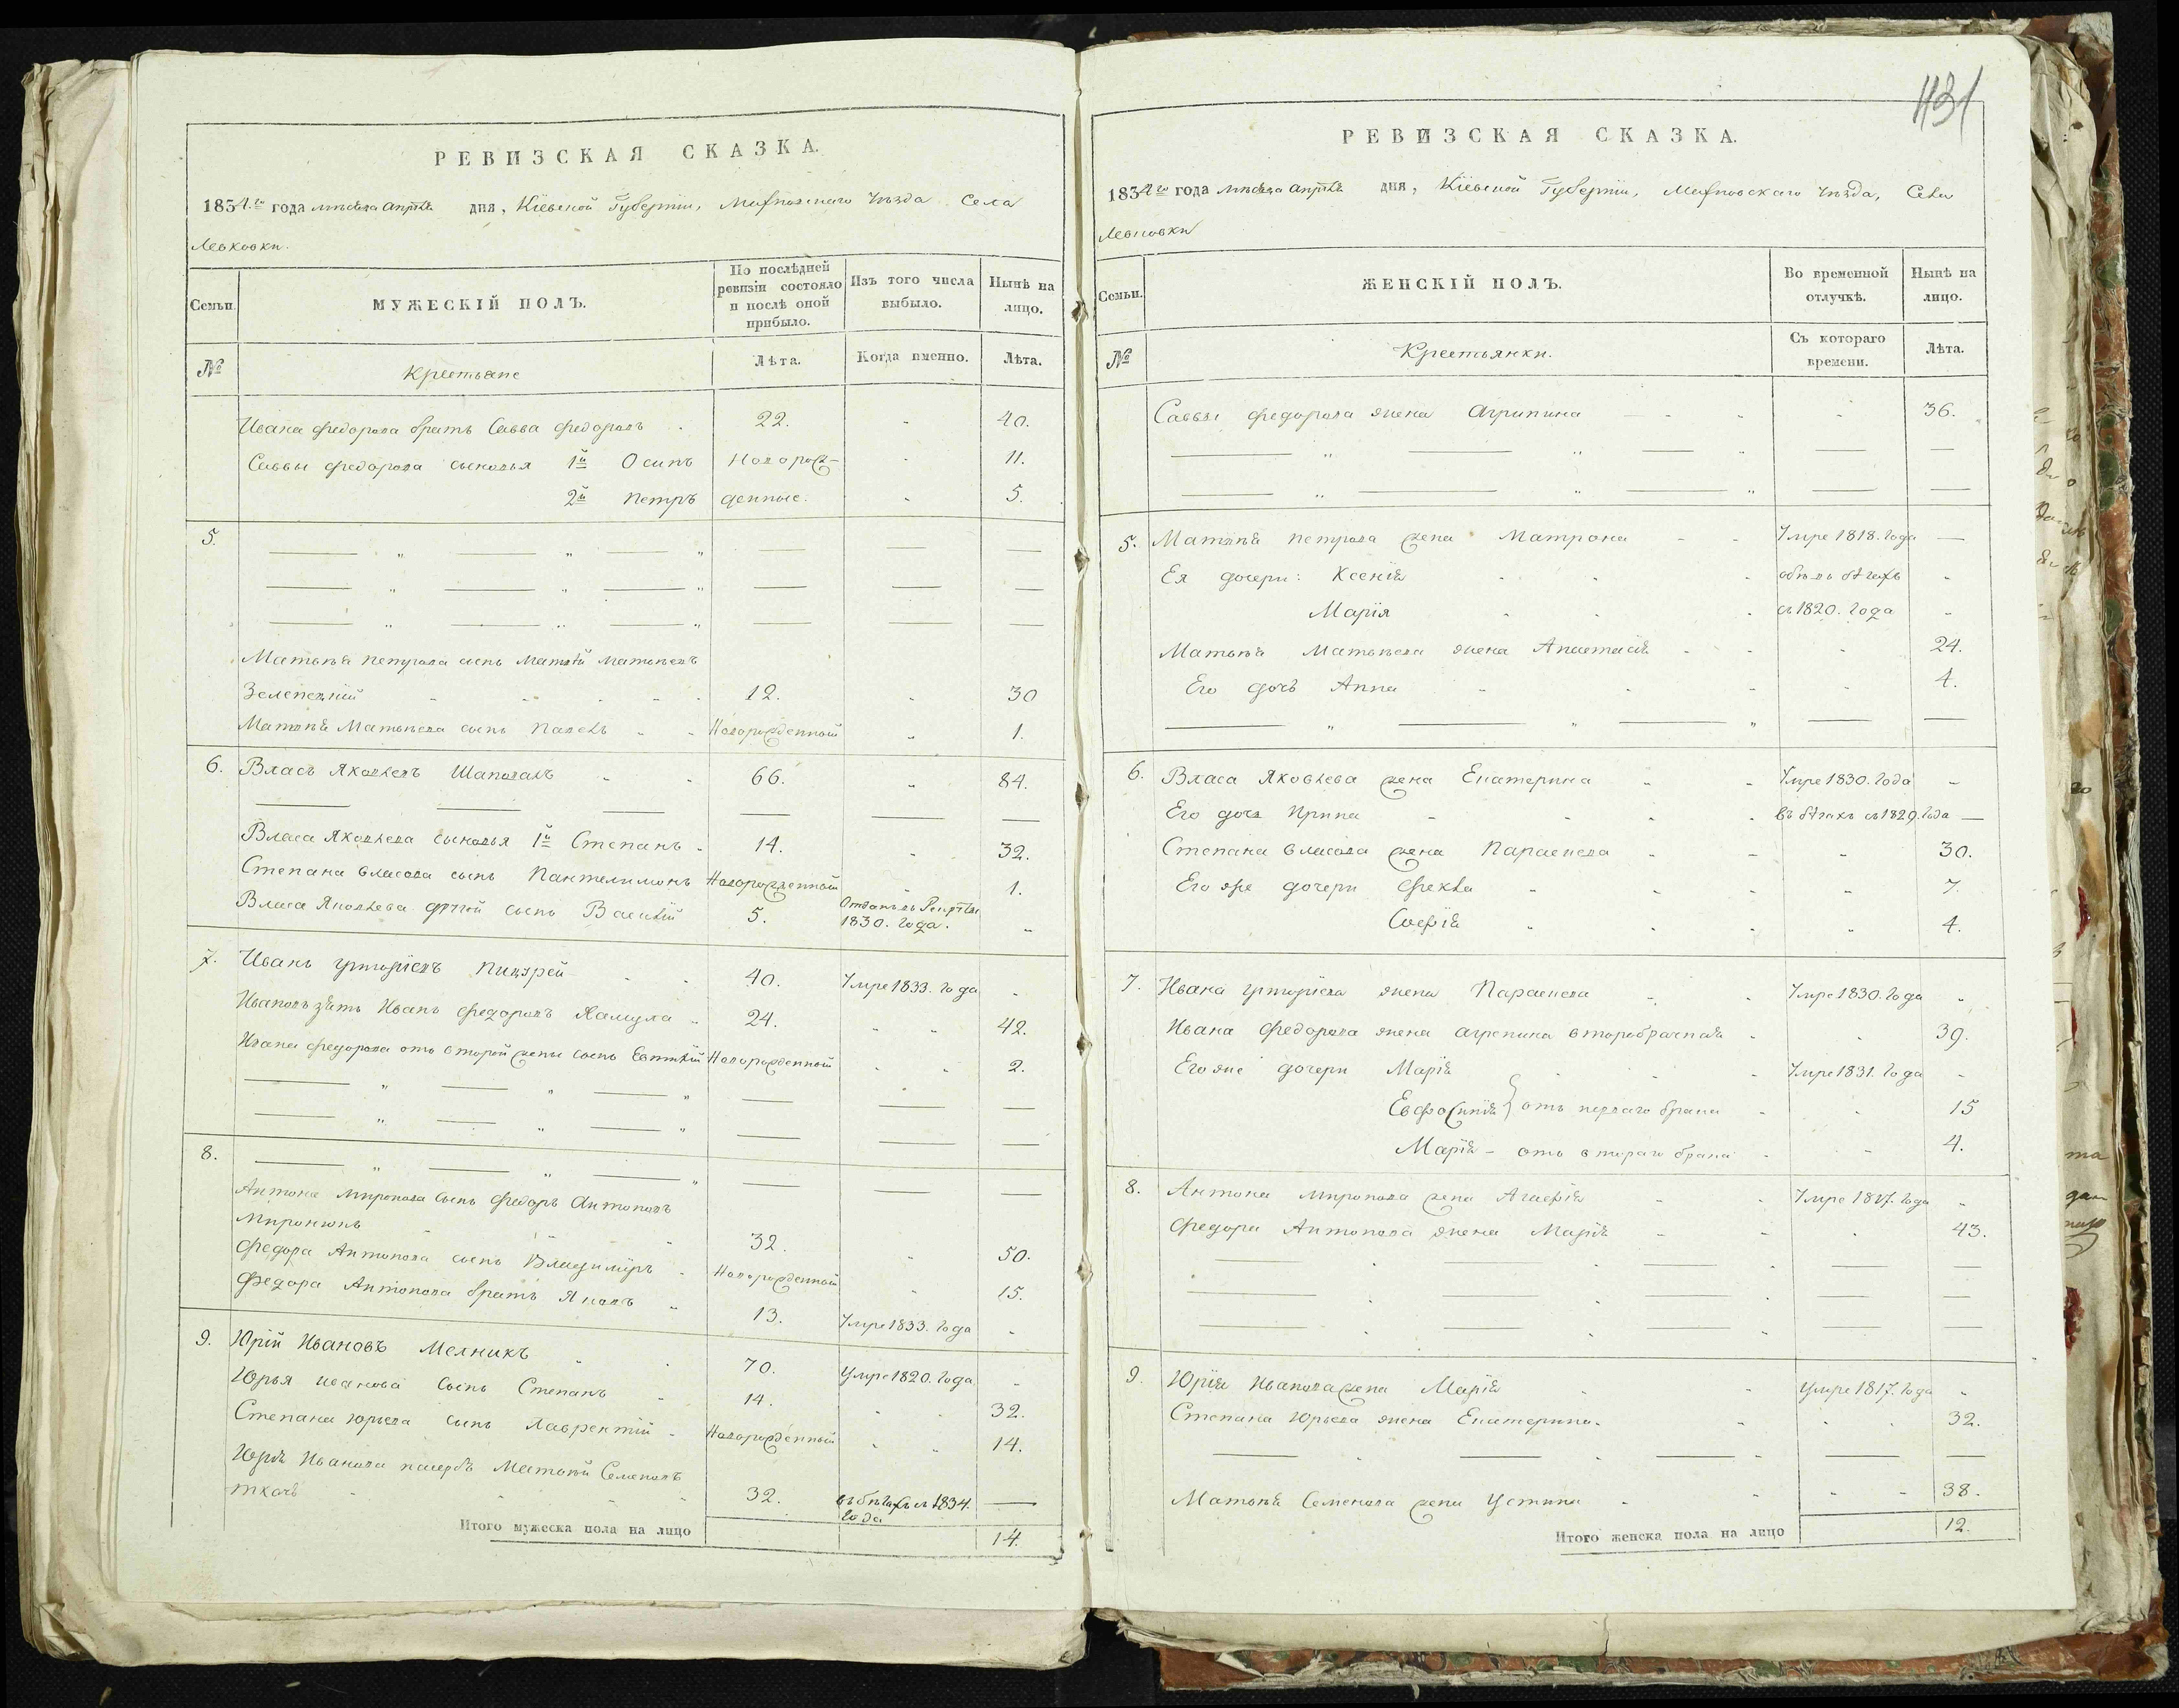 РЕВИЗСКАЯ СКАЗКА.
1834го года месяца Апреля дня, Кіевской Губерніи, Уѣзда Села
Левковки.
Семьи.
МУЖЕСКІЙ ПОЛЪ.
По послѣдней ревизіи состояло и послѣ оной прибыло.
Изъ того числа выбыло.
Нынѣ на лицо.
№
Крестьяне
Лѣта.
Когда именно.
Лѣта.
Ивана Федорова братъ Савва Федоровъ 22. 40.
Саввы Федорова сыновья 1й Осипъ Новорож- 11.
2й Петръ денные. 5.
5.
Матвѣя Петрова сынъ Матвѣй Матвѣевъ
12. 30
Матвѣя Матвѣева сынъ Павелъ Новорожденный 1.
6. Власъ Яковлевъ Шаповалъ 66. 84.
Власа Яковлева сыновья 1й Степанъ 14. 32.
Степана Власова сынъ Пантелимонъ Новорожденный 1.
Власа Яковлева сынъ Василій 5. Отданъ въ Рекруты 1830. года.
7. Иванъ Григоріевъ 40. Умре 1833. года
Ивановъ зять Иванъ Федоровъ 24. 42.
Ивана Федорова отъ второй жены сынъ Евтихій Новорожденный 2.
8.
Антона Миронова сынъ Федоръ Антоновъ
Миронюкъ 32. 50.
Федора Антонова сынъ Владимиръ Новорожденный 15.
Федора Антонова братъ Яковъ 13. Умре 1833. года
9. Юрій Ивановъ Мелникъ 70. Умре 1820. года
Юрья Иванова сынъ Степанъ 14. 32.
Степана Юрьева сынъ Лаврентій Новорожденный 14.
Юрія Иванова пасербъ Матвѣй Семеновъ
Ткачъ 32. въ бѣгахъ съ 1834. года
Итого мужеска пола на лицо 14.
1131
РЕВИЗСКАЯ СКАЗКА.
1834го года месяца Апреля дня, Кіевской Губерніи, Уѣзда, Села
Левковки
Семьи.
ЖЕНСКІЙ ПОЛЪ.
Во временной отлучкѣ.
Нынѣ на лицо.
№
Крестьянки.
Съ котораго времени.
Лѣта.
Саввы Федорова жена Агрипина 36.
5. Матвѣя Петрова жена Матрона Умре 1818. года
Ея дочери: Ксенія обѣ въ бѣгахъ
Марія съ 1820. года
Матвѣя Матвѣева жена Анастасія 24.
Его дочь Анна 4.
6. Власа Яковлева жена Екатерина Умре 1830. года
Его дочь Ирина въ бѣгахъ съ 1829. года
Степана Власова жена Параскева 30.
Его же дочери Фекла 7.
Софія 4.
7. Ивана Григоріева жена Параскева Умре 1830. года
Ивана Федорова жена Агрепина второбрачная 39.
Его же дочери Марія Умре 1831. года
Евфросинія } отъ перваго брака 15
Марія - отъ втораго брака 4.
8. Антона Миронова жена Умре 1817. года
Федора Антонова жена Марія 43.
9. Юрія Иванова жена Марія Умре 1817. года
Степана Юрьева жена Екатерина 32.
Матвѣя Семенова жена Устина 38.
Итого женска пола на лицо 12.